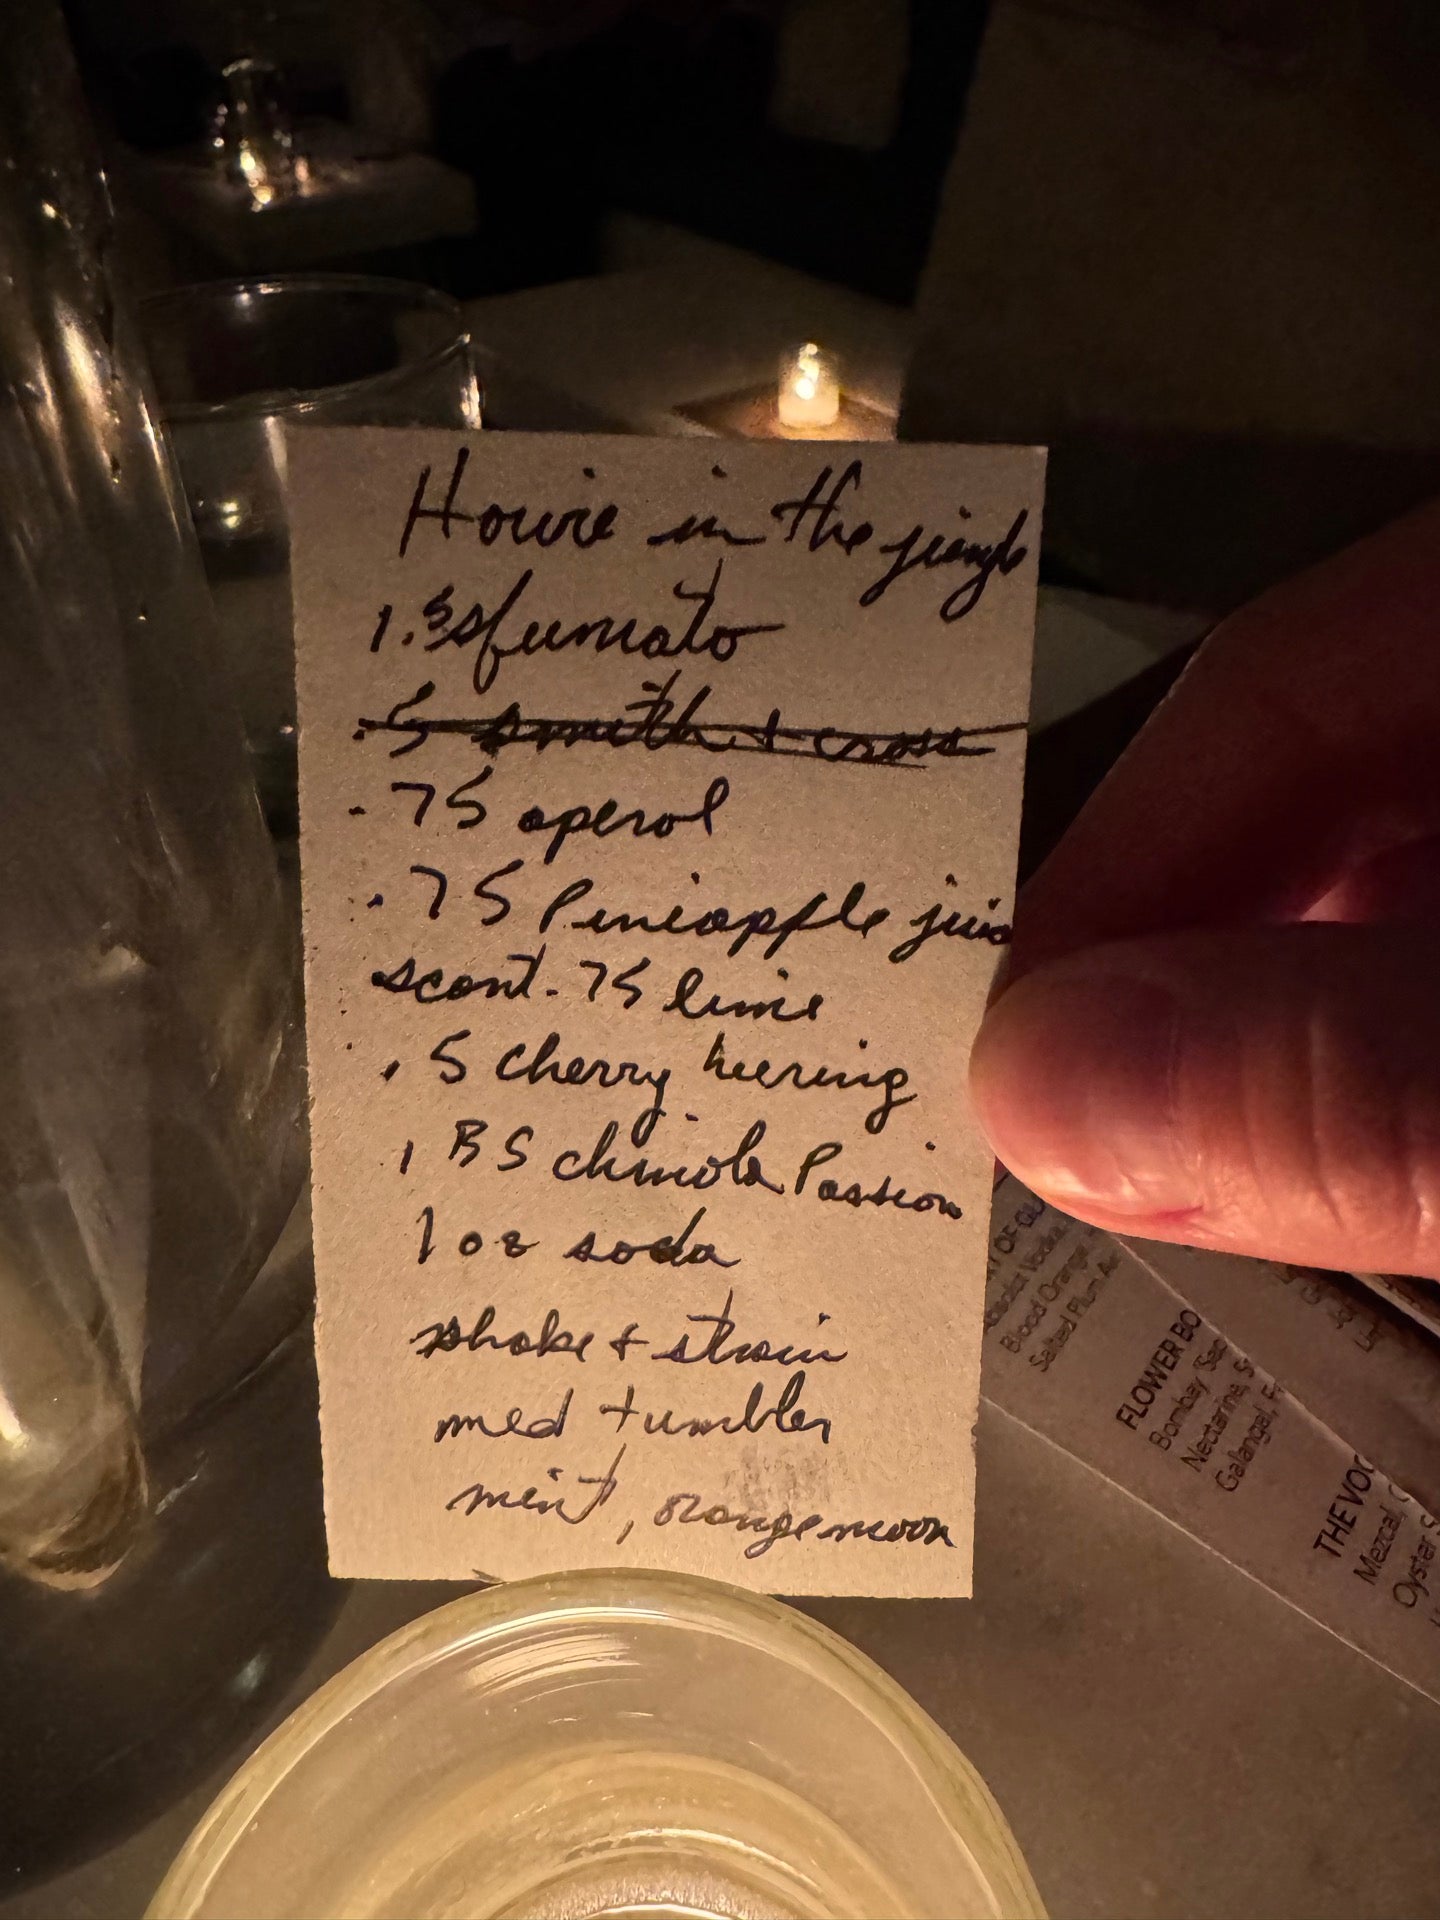 Howie in the jungle
1.5 sfumato
.5 smith + cross
.75 aperol
.75 Pineapple juic
scant .75 lime
.5 Cherry heering
1 BS chinola Passion
1 oz soda
shake + strain
med tumbler
mint, orange moon
Blood Orange
Salted Plum
FLOWER BO
Bombay
Nectarine, S
Galangal, F
THE VOC
Mezcal,
Oyster S